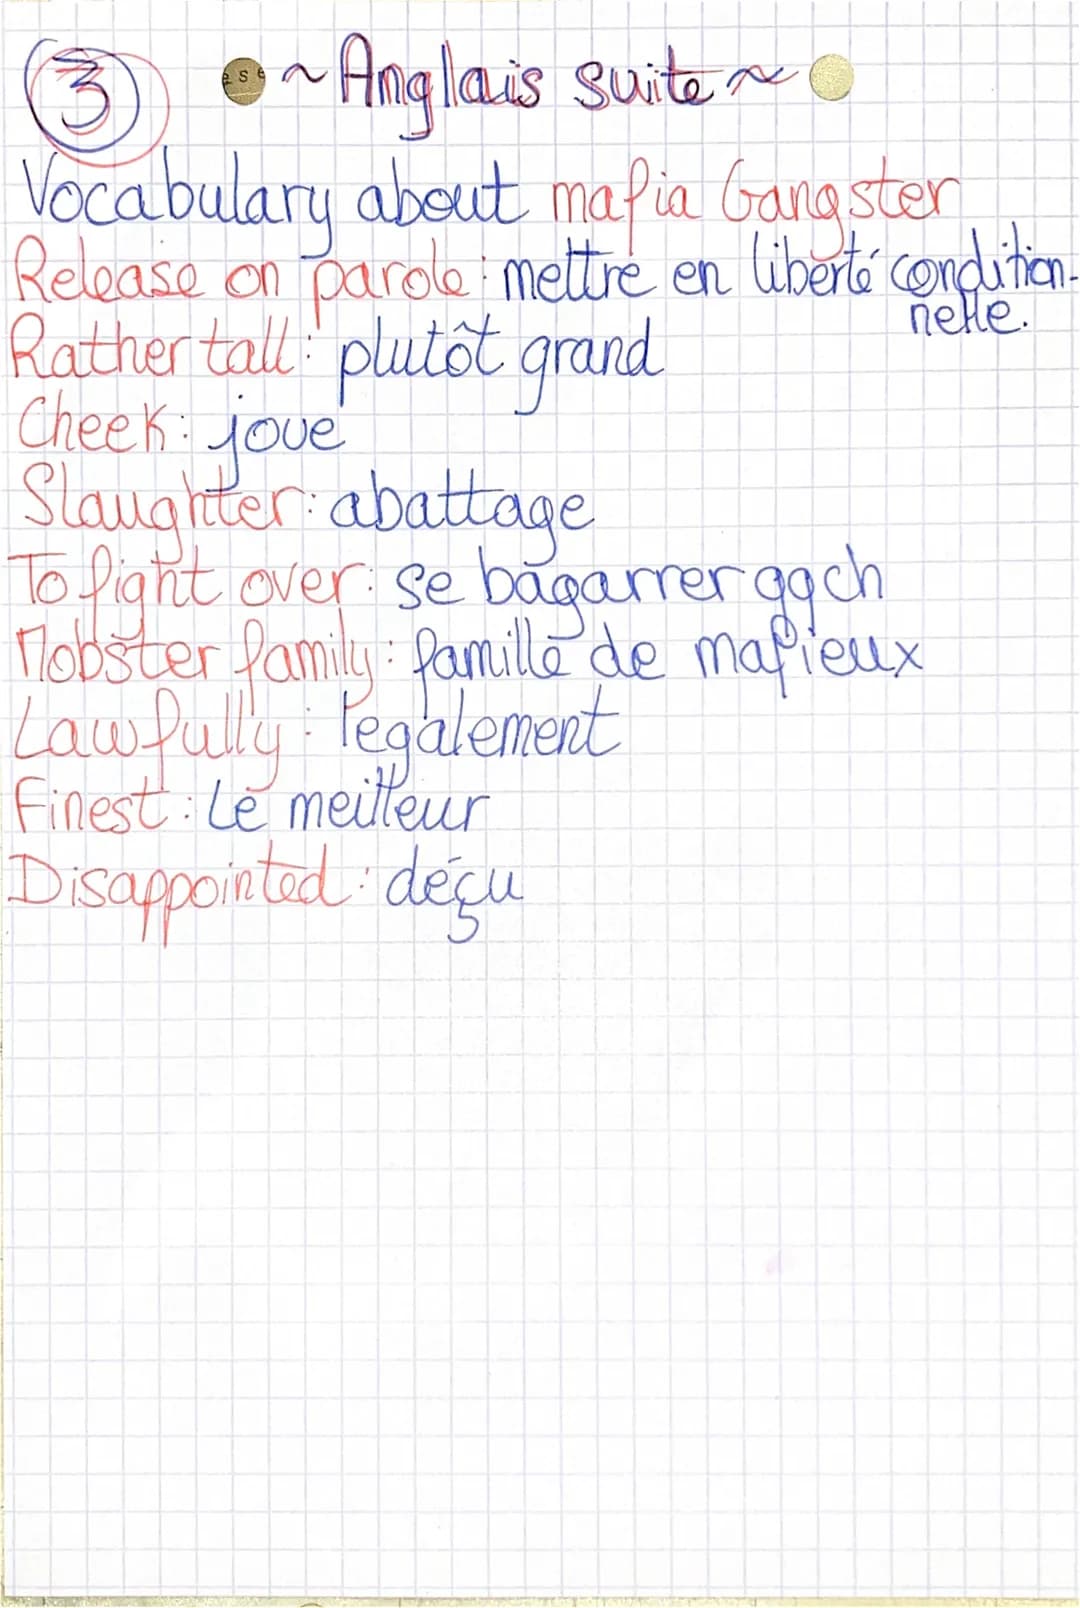 3 ~ Anglais suite ~
Vocabulary about mafia Gangster
Release on parole : mettre en liberté condition-
nelle.
Rather tall : plutôt grand
Cheek : joue
Slaughter : abattage
To fight over : se bagarrer qqch
Mobster family : famille de mafieux
Lawfully : légalement
Finest : Le meilleur
Disappointed : déçu